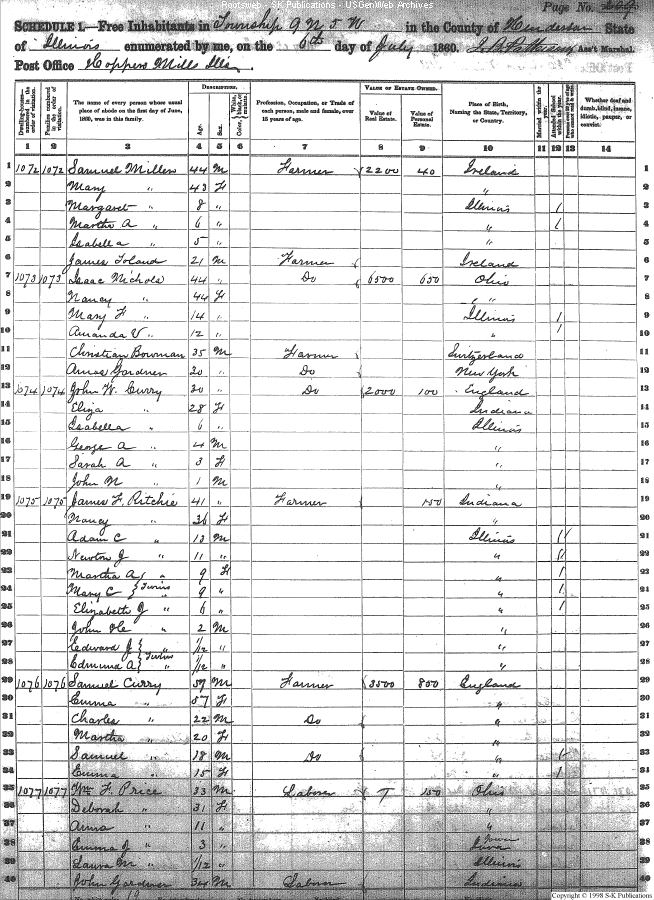 Rootsweb - SK Publications - USGenWeb Archives
Page No.
SCHEDULE 1.—Free Inhabitants in Township 9 N 5 W in the County of Henderson State
of Illinois enumerated by me, on the 6th day of July 1860. Ass't Marshal.
Post Office Hoppers Mills Ills
Dwelling-houses numbered in the order of visitation. Families numbered in the order of visitation. The name of every person whose usual place of abode on the first day of June, 1860, was in this family. DESCRIPTION. Age. Sex. Color, Profession, Occupation, or Trade of each person, male and female, over 15 years of age. VALUE OF ESTATE OWNED. Value of Real Estate. Value of Personal Estate. Place of Birth, Naming the State, Territory, or Country. Married within the year. Attended School within the year. Whether deaf and dumb, blind, insane, idiotic, pauper, or convict.
1 2 3 4 5 6 7 8 9 10 11 12 13 14
1 1072 1072 Samuel Miller 44 M Farmer 2200 40 Ireland 1
2 Mary " 43 F " 2
3 Margaret " 8 " Illinois / 3
4 Martha A " 6 " " / 4
5 Isabella " 5 " " 5
6 James Toland 21 M Farmer Ireland 6
7 1073 1073 Isaac Nichols 44 " Do 6500 650 Ohio 7
8 Nancy " 44 F " 8
9 Mary F " 14 " Illinois / 9
10 Amanda V " 12 " " / 10
11 Christian Bowman 35 M Farmer Switzerland 11
12 Amos Gardner 30 " Do New York 12
13 1074 1074 John W. Curry 30 " Do 2000 100 England 13
14 Eliza " 28 F Indiana 14
15 Isabella " 6 " Illinois 15
16 George A " 4 M " 16
17 Sarah A " 3 F " 17
18 John N " 1 M " 18
19 1075 1075 James F. Ritchie 41 " Farmer 150 Indiana 19
20 Nancy " 36 F " 20
21 Adam C " 13 M Illinois / 21
22 Newton J " 11 " " / 22
23 Martha A " 9 F " / 23
24 Mary C } Twins " 9 " " / 24
25 Elizabeth J " 6 " " / 25
26 John " 2 M " 26
27 Edward J 1/12 " " 27
28 Edmund A } Twins " 1/12 " " 28
29 1076 1076 Samuel Curry 59 M Farmer 3500 800 England 29
30 Emma " 57 F " 30
31 Charles " 22 M Do " 31
32 Martha " 20 F " 32
33 Samuel " 18 M Do " / 33
34 Emma " 15 F " / 34
35 1077 1077 Wm F. Price 33 M Laborer 150 Ohio 35
36 Deborah " 31 F " 36
37 Anna " 11 " " 37
38 Emma J " 3 " Iowa 38
39 Laura M " 1/12 " Illinois 39
40 John Gardner 34 M Laborer Indiana 40
Copyright © 1998 S-K Publications